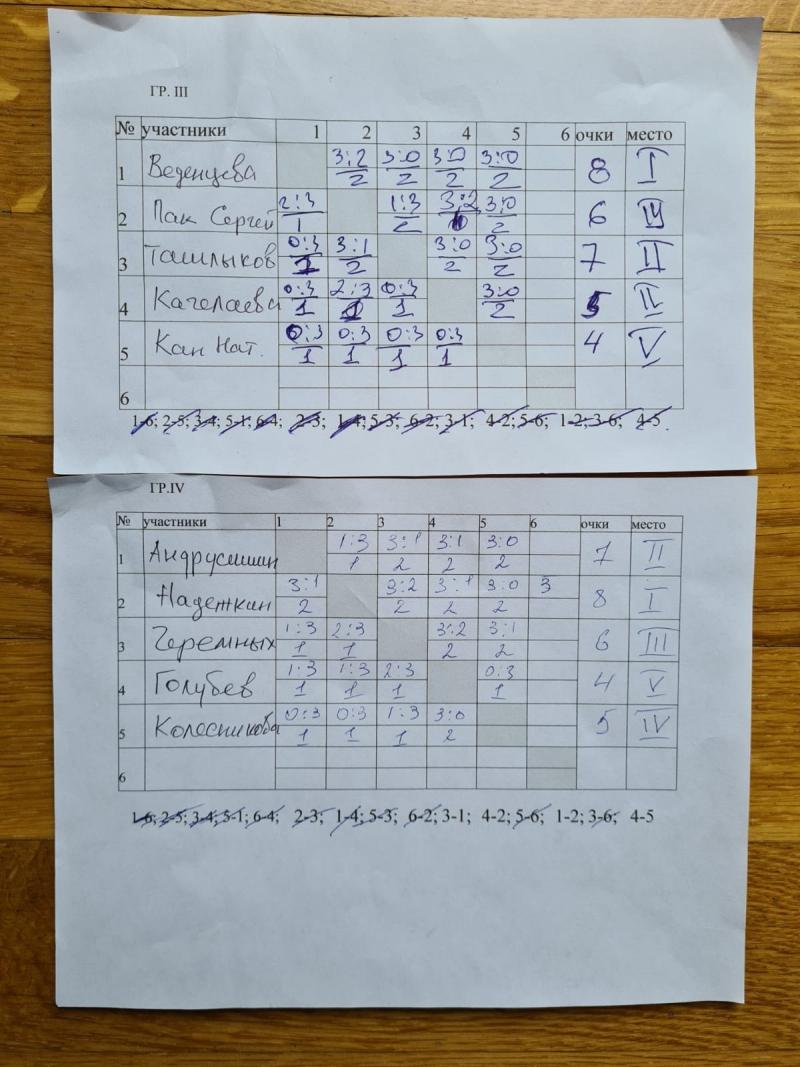 ГР. III
№ участники 1 2 3 4 5 6 очки место
1 Веденцева 3:2 3:0 3:0 3:0 8 I
2 2 2 2
2 Пак Сергей 2:3 1:3 3:2 3:0 6 III
1 2 2
3 Ташлыков 0:3 3:1 3:0 3:0 7 II
1 2 2 2
4 Качелаева 0:3 2:3 0:3 3:0 5 IV
1 1 1 2
5 Кан Нат. 0:3 0:3 0:3 0:3 4 V
1 1 1 1
6
1-6; 2-5; 3-4; 5-1; 6-4; 2-3; 1-4; 5-3; 6-2; 3-1; 4-2; 5-6; 1-2; 3-6; 4-5
ГР.IV
№ участники 1 2 3 4 5 6 очки место
1 Андрусишин 1:3 3:1 3:1 3:0 7 II
1 2 2 2
2 Надежкин 3:1 3:2 3:1 3:0 3 8 I
2 2 2 2
3 Черемных 1:3 2:3 3:2 3:1 6 III
1 1 2 2
4 Голубев 1:3 1:3 2:3 0:3 4 V
1 1 1 1
5 Колесникова 0:3 0:3 1:3 3:0 5 IV
1 1 1 2
6
1-6; 2-5; 3-4; 5-1; 6-4; 2-3; 1-4; 5-3; 6-2; 3-1; 4-2; 5-6; 1-2; 3-6; 4-5